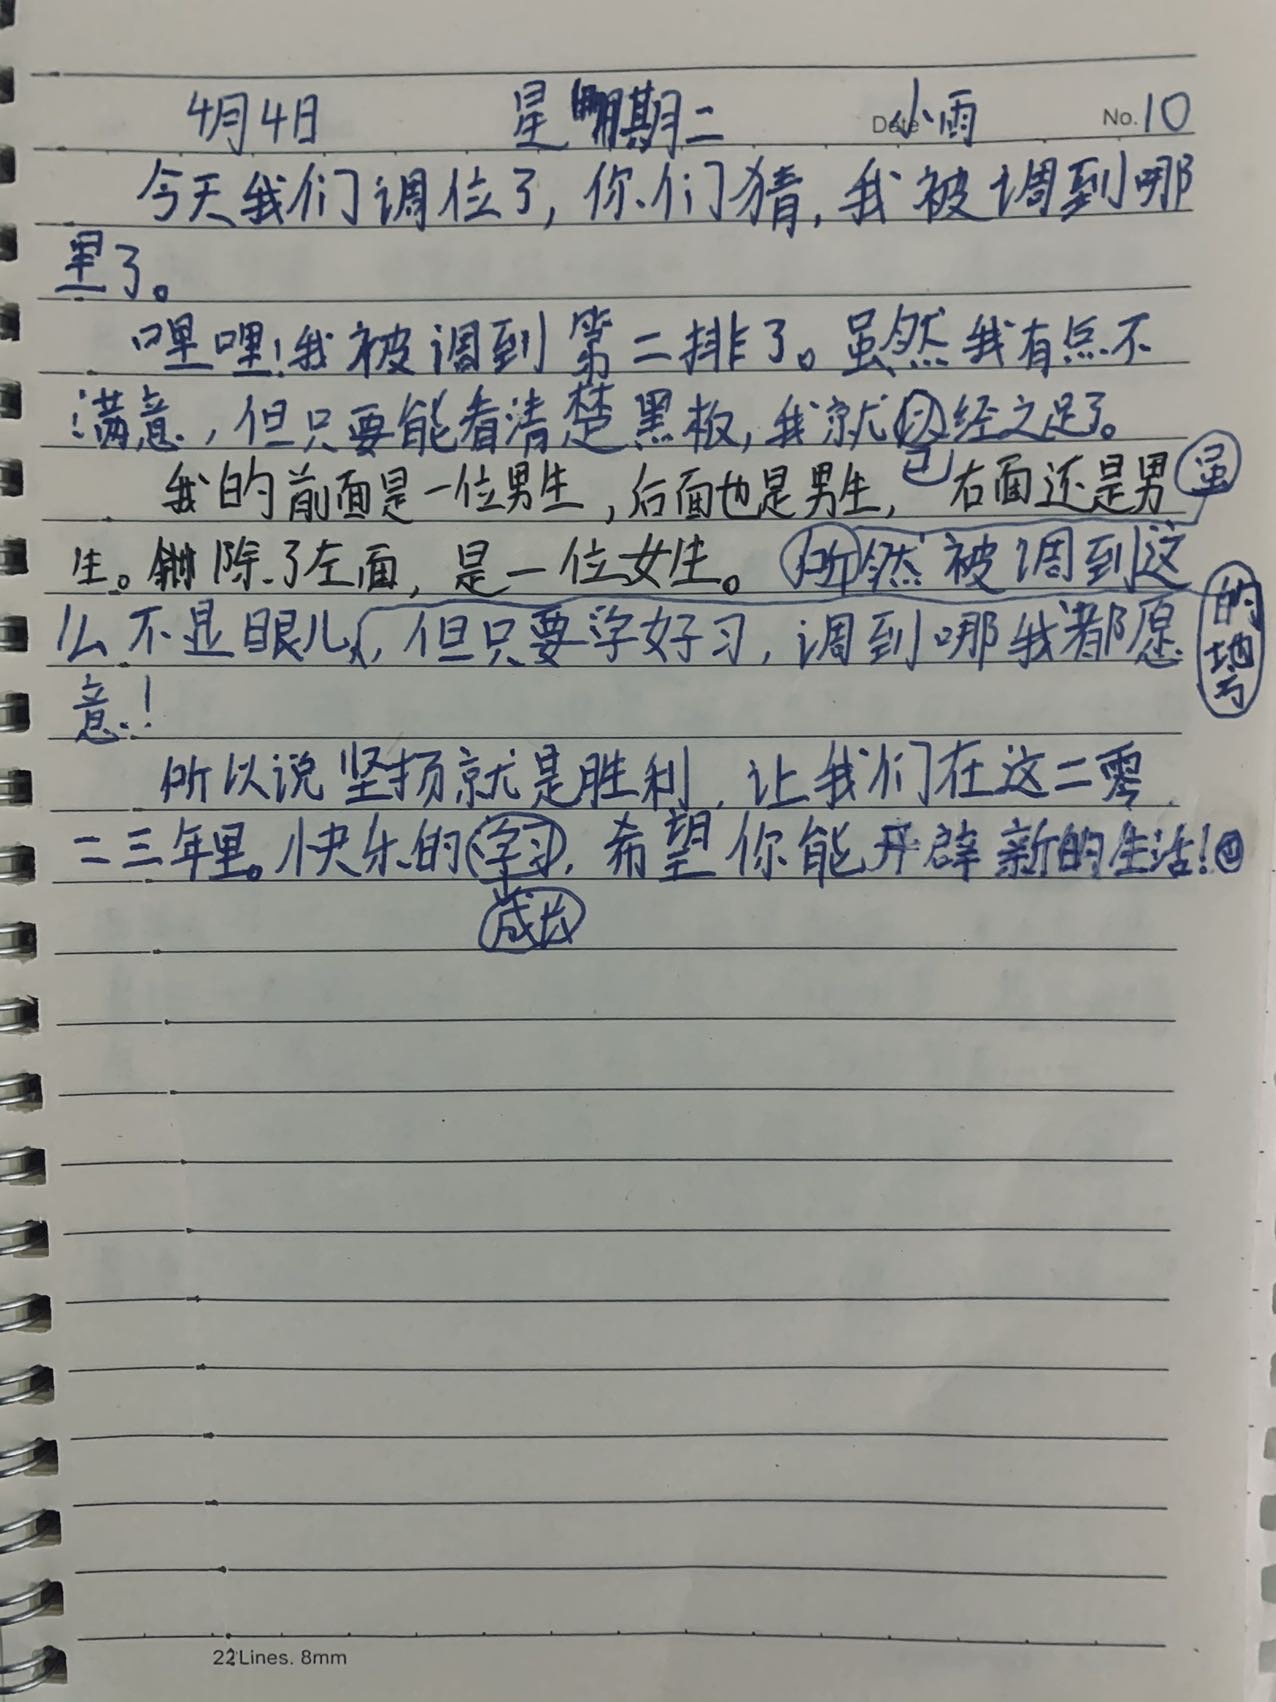 4月4日 星期二 Date 小雨 No. 10
今天我们调位了,你们猜,我被调到哪
里了。
哩哩!我被调到第二排了。虽然我有点不
满意,但只要能看清楚黑板,我就以经之足了。
已
我的前面是一位男生,后面也是男生,右面还是男
虽
生。除了左面,是一位女生。所然被调到这
么不显眼儿,但只要学好习,调到哪我都愿
的地方
意!
所以说坚持就是胜利,让我们在这二零
二三年里。快乐的学习,希望你能开辟新的生活!
成长
22Lines. 8mm